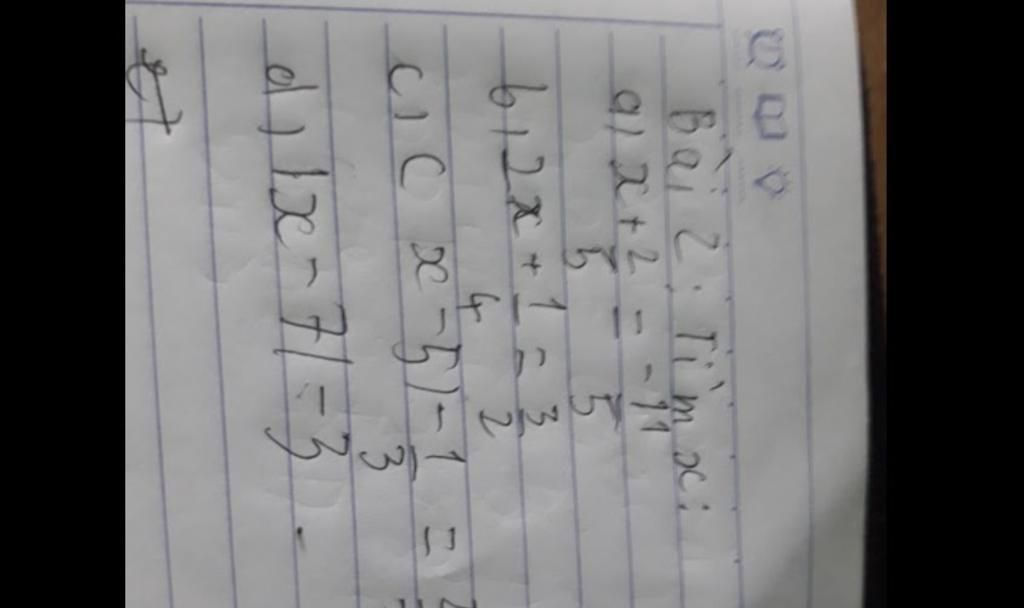 Bài 2: Tìm x:
a) x + 2/5 = -11/5
b) 2x + 1/4 = 3/2
c) ( x - 5) - 1/3 =
d) |x - 7| = 3.